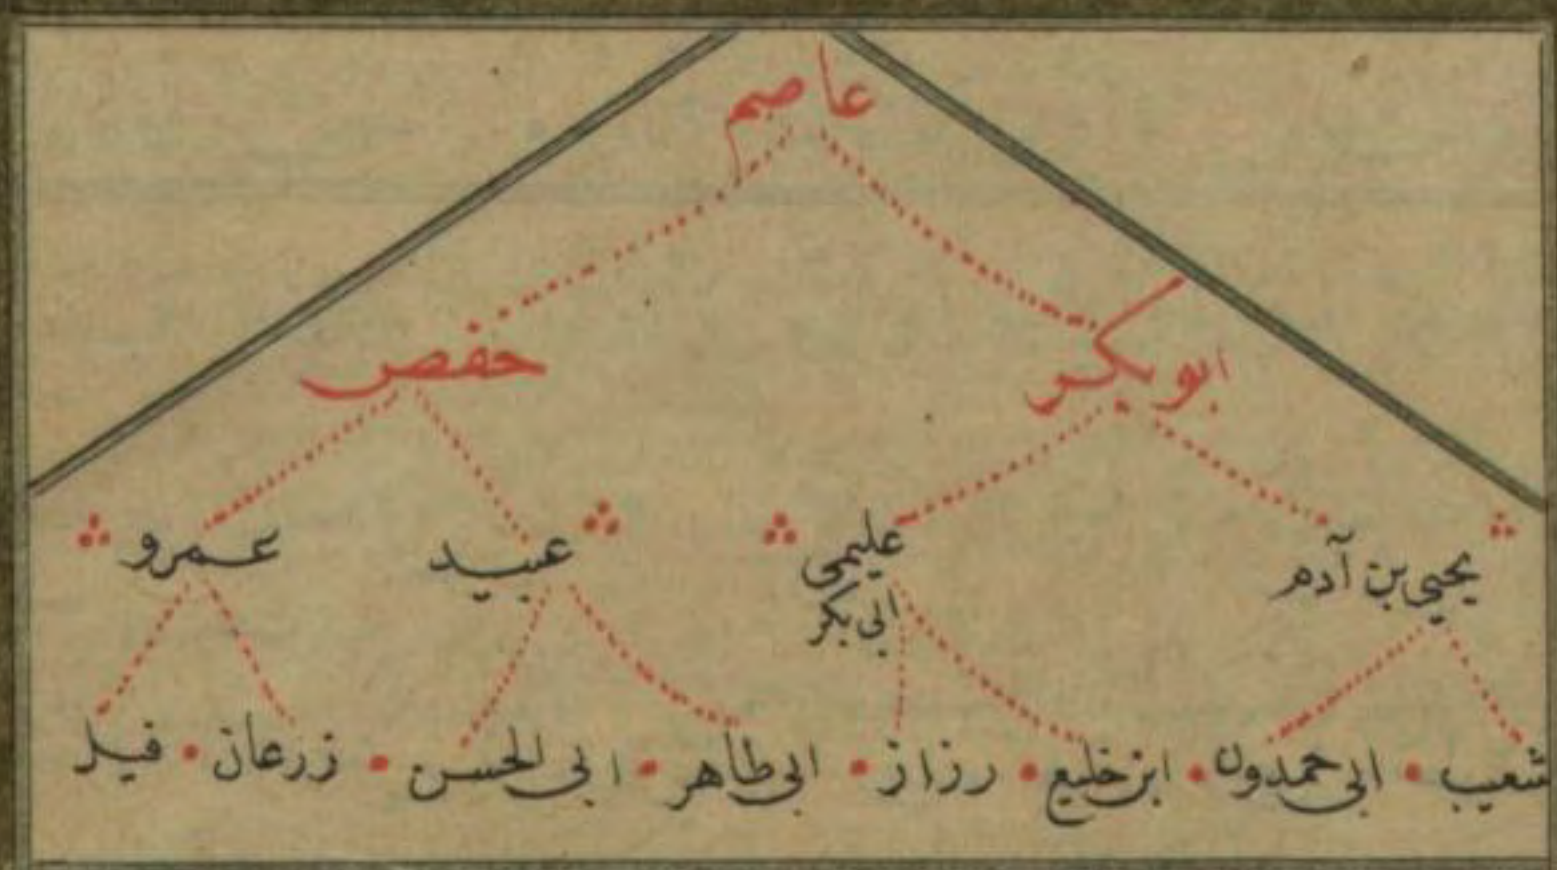 عاصم
ابو بكر حفص
يحيى بن آدم عليمى عبيد عمرو
ابى بكر
شعيب • ابى حمدون • ابن خليع • رزاز • ابى طاهر • ابى الحسن • زرعان • فيل